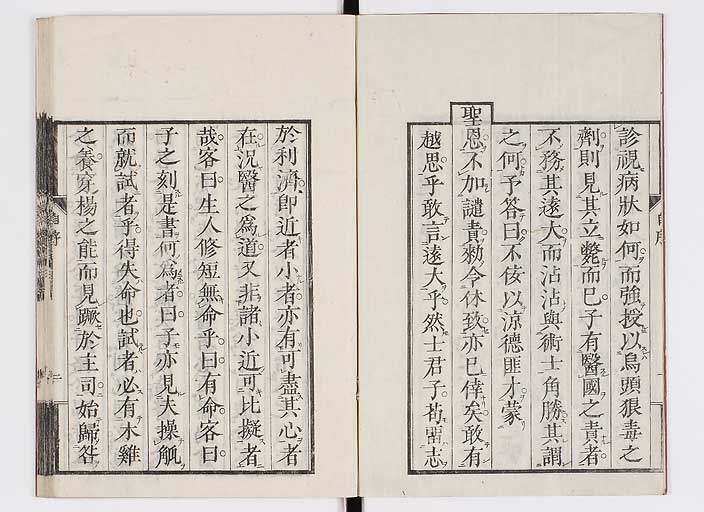 診視病狀如何而強授以烏頭狼毒之
劑則見其立斃而已子有醫國之責者
不務其遠大而沾沾與術士角勝其謂
之何予答曰不佞以涼德匪才蒙
聖恩不加譴責勑令休致亦已倖矣敢有
越思乎敢言遠大乎然士君子苟畱志
自序
於利濟即近者小者亦有可盡其心者
在況醫之爲道又非諸小近可比擬者
哉客曰生人修短無命乎曰有命客曰
子之刻是書何爲者曰子亦見夫操觚
而就試者乎得失命也試者必有木雞
之養穿楊之能而見蹶於主司始歸咎
自序
二